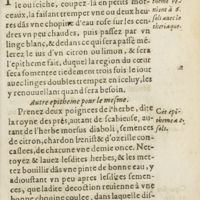 le ou ciche, coupez-la en petits mor-
ceaux, la faisant tremper vne ou deux heu
res dãs vne chopine d'eau rose sur les cen-
dres vn peu chaudes, puis passez par vn
linge blanc, & dedans ce qui sera passé mes-
lerez le ius d'vn citron ou limon, & sera
l'epitheme fait, duquel la region du cœur
sera fomentee tiedement trois fois le iour
auec linges doubles trempez en iceluy, les
y renouuellant quand sera besoin.
Autre epitheme pour le mesme.
Prenez deux poignees de l'herbe, dite
la royne des prés, autant de scabieuse, au-
tant de l'herbe morsus diaboli, semences
de citron, chardon benist & d'ozeille con-
cassees, de chacune vne demie once. Net-
toyez & lauez lesdites herbes, & les met-
tez bouillir dãs vne pinte de bonne eau, y
adioustant vn peu apres lesdites semen-
ces, que ladite decoction reuienne à vne
bonne chopine coulee, dans laquelle dis-
nient à
fait auec la
theriaque.
Cet epi-
theme